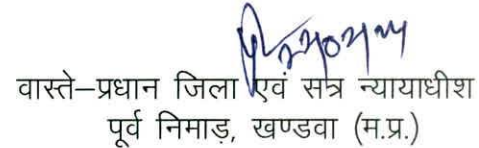 वास्ते–प्रधान जिला एवं सत्र न्यायाधीश
पूर्व निमाड़, खण्डवा (म.प्र.)